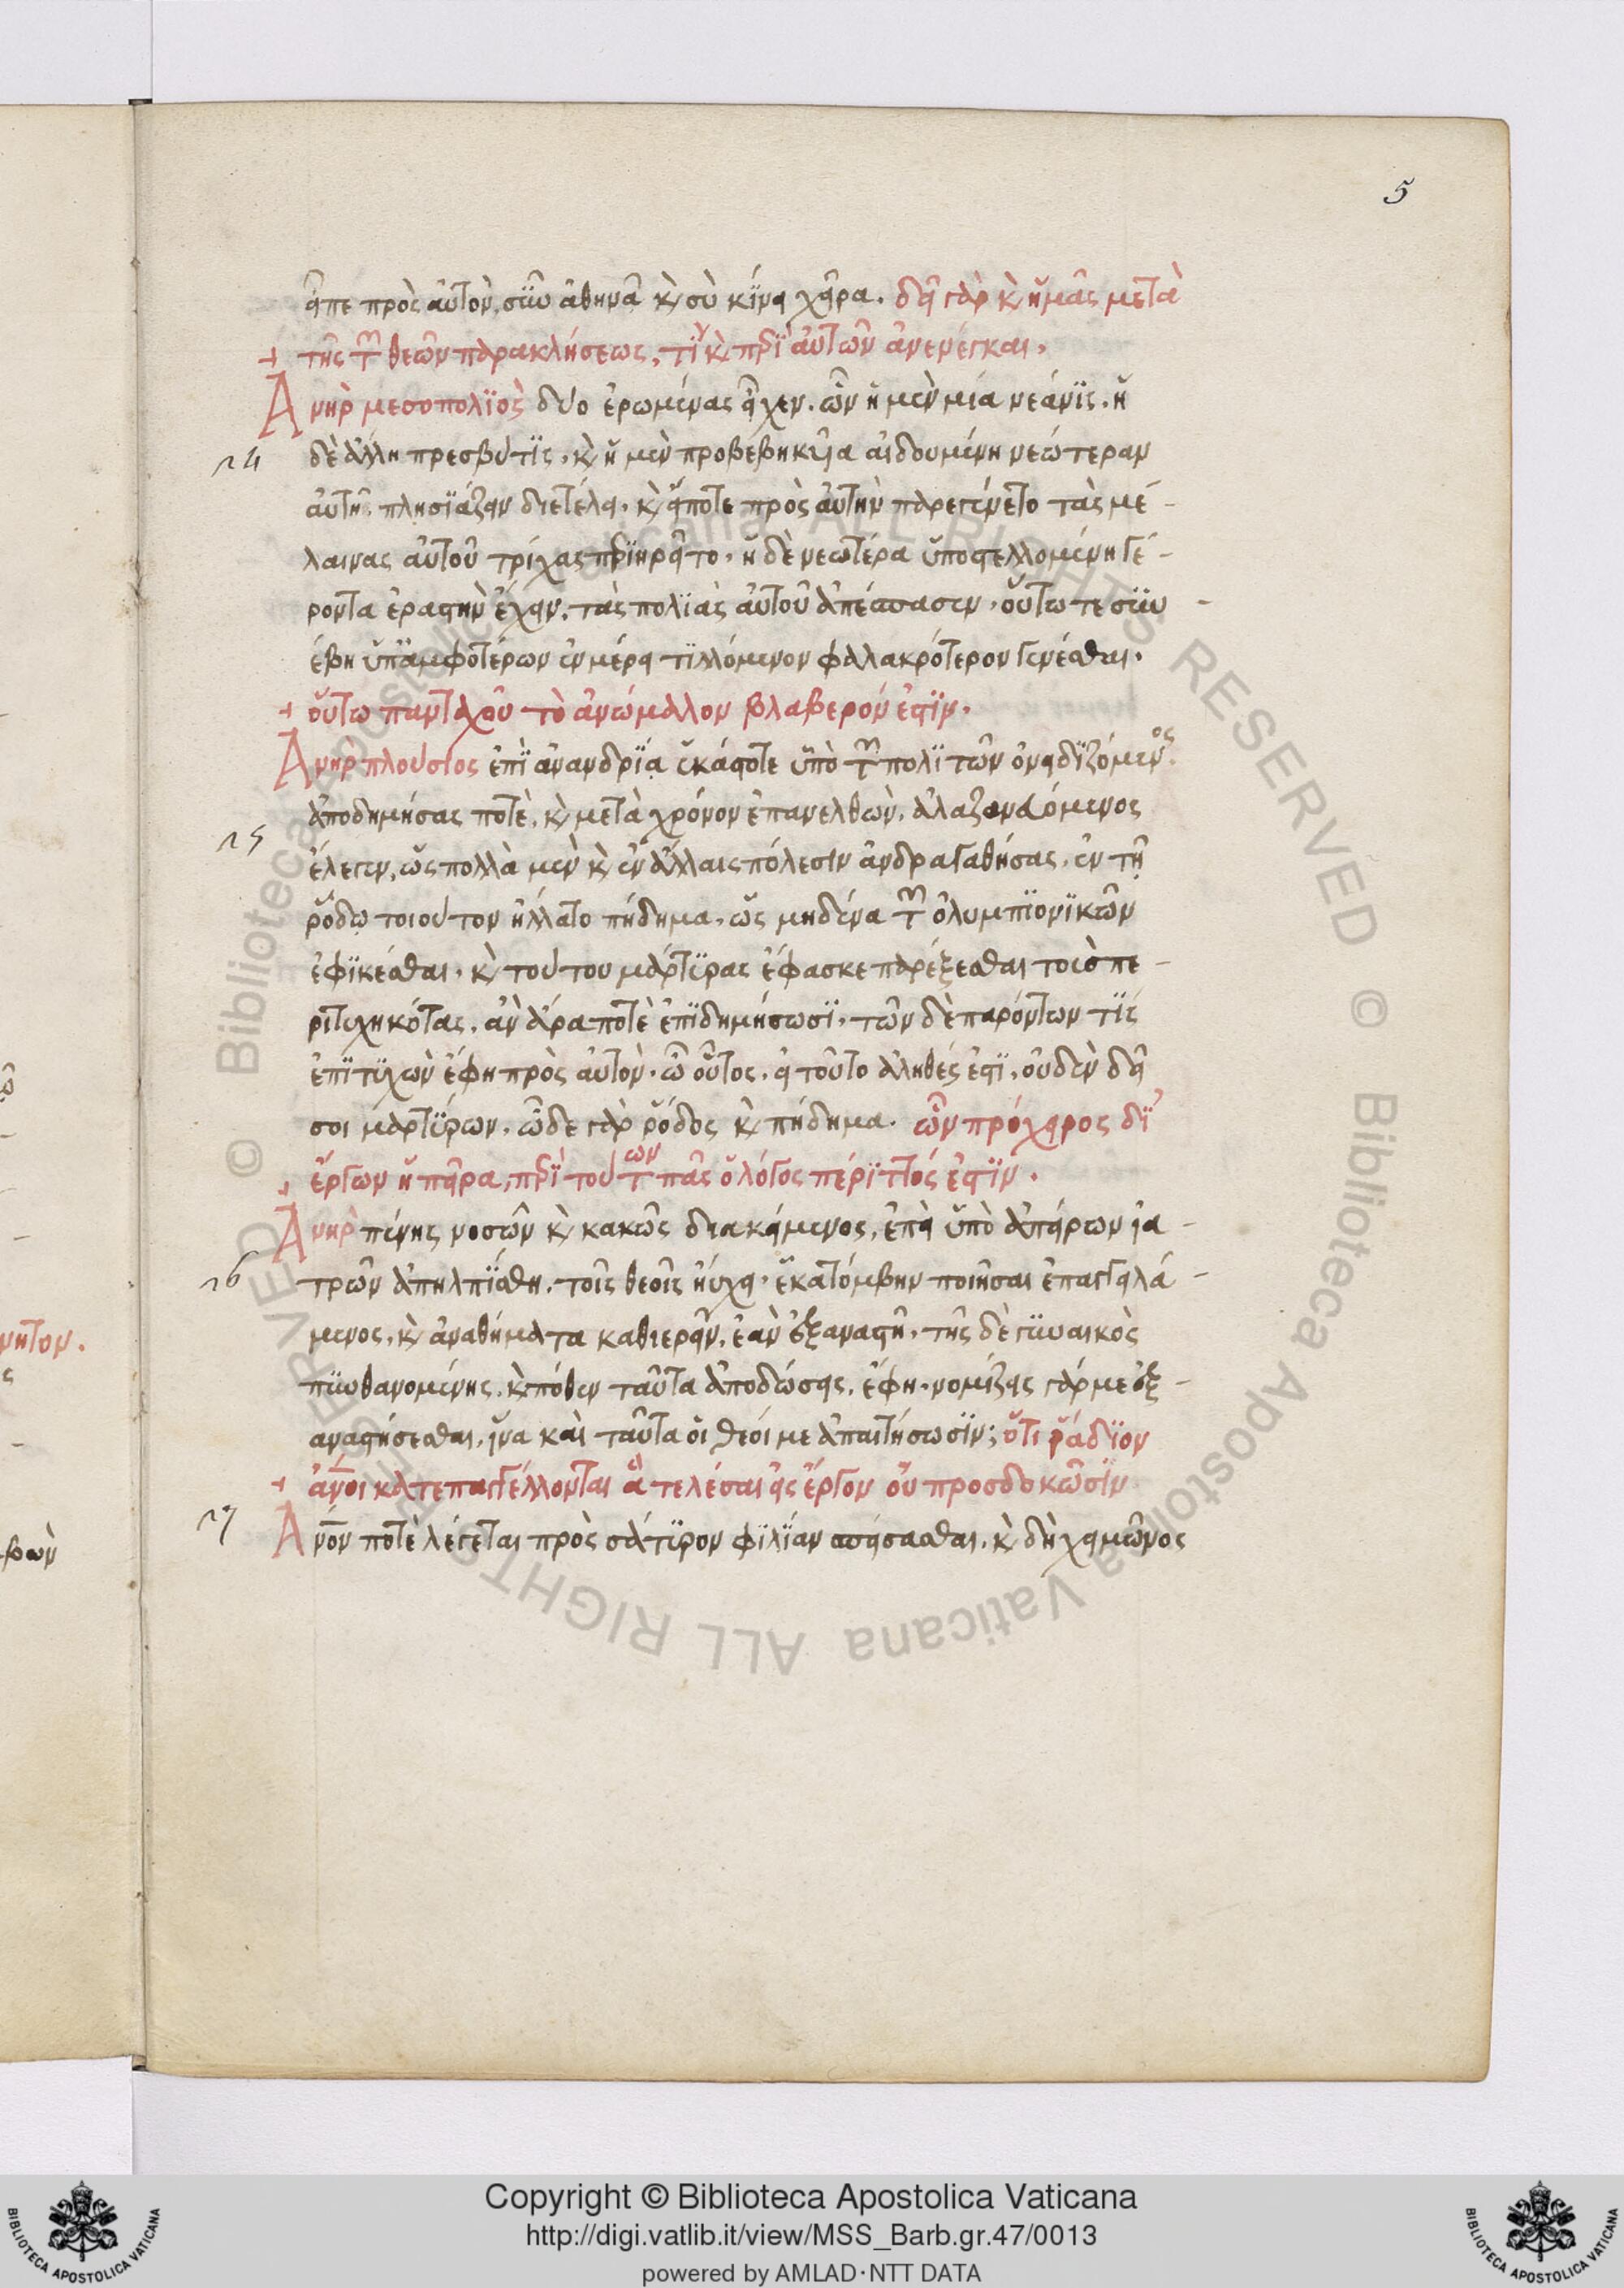 5
εἶπε πρὸς αὐτὸν, σὺν ἀθηνᾶ κ̀ σὺ κίνει χεῖρα. δεῖ γὰρ κ̀ ἡμᾶς μετὰ
τῆς τῶν θεῶν παρακλήσεως, τὶ κ̀ περὶ αὐτῶν ἀνενέγκαι.
Ἀνὴρ μεσοπόλϊος δύο ἐρωμένας εἶχεν. ὧν ἡ μὲν μία νεάνϊς. ἡ
24 δὲ ἄλλη πρεσβύτϊς. κ̀ ἡ μὲν προβεβηκυῖα αἰδουμένη νεώτεραν
αὐτῆς πλησϊάζειν διετέλει. κ̀ εἴποτε πρὸς αὐτὴν παρεγένετο τὰς μέ-
λαινας αὐτοῦ τρίχας περϊηρεῖτο. ἡ δὲ νεωτέρα ὑποστελλομένη γέ-
ροντα ἐραστὴν ἔχειν, τὰς πολϊὰς αὐτοῦ ἀπέσπασεν. οὕτω τε συν-
έβη ὑπ' ἀμφοτέρων ἐν μέρει τϊλλόμενον φαλακρότερον γενέσθαι.
οὕτω πανταχοῦ τὸ ἀνώμαλον βλαβερόν ἐστϊν.
Ἀνὴρ πλούσιος ἐπϊ ἀνανδρϊᾳ ἑκάστοτε ὑπὸ τῶν πολϊτῶν ὀνειδϊζόμενος.
25 ἀποδημήσας ποτὲ, κ̀ μετὰ χρόνον ἐπανελθὼν, ἀλαζονευόμενος
ἔλεγεν, ὡς πολλὰ μὲν κ̀ ἐν ἄλλαις πόλεσιν ἀνδραγαθήσας, ἐν τῇ
ῥόδῳ τοιοῦτον ἥλλατο πήδημα, ὡς μηδένα τῶν ὀλυμπϊονϊκῶν
ἐφϊκέσθαι. κ̀ τούτου μάρτϋρας ἔφασκε παρέξεσθαι τοὺς πε-
ριτυχηκότας, ἂν ἄρα ποτὲ ἐπϊδημήσωσϊ. τῶν δὲ παρόντων τϊς
ἐπϊτϋχὼν ἔφη πρὸς αὐτὸν. ὦ οὗτος. εἰ τοῦτο ἀληθές ἐστϊ, οὐδὲν δεῖ
σοι μαρτϋρων. ὧδε γὰρ ῥόδος κ̀ πήδημα. ὧν πρόχειρος δϊ'
ἔργων ἡ πεῖρα, περὶ τούτων πᾶς ὁ λόγος περϊττός ἐστϊν.
Ἀνὴρ πένης νοσῶν κ̀ κακῶς διακείμενος, ἐπεὶ ὑπὸ ἀπείρων ἰα-
26 τρῶν ἀπηλπϊσθη, τοῖς θεοῖς ηὔχει. ἑκατόμβην ποιῆσαι ἐπαγγειλά-
μενος, κ̀ ἀναθήματα καθιερεῖν, ἐὰν ἐξαναστῇ. τῆς δὲ γυναικὸς
πυνθανομένης, κ̀ πόθεν ταῦτα ἀποδώσεις, ἔφη. νομίζεις γάρ με ἐξ-
αναστήσεσθαι, ἵνα καὶ ταῦτα οἱ θεοί με ἀπαιτήσωσϊν; ὅτι ῥᾴδϊον
ἄν̅οι κατεπαγγέλλονται ἃ τελέσαι εἰς ἔργον οὐ προσδοκῶσϊν
27 Ἄνο̅ν ποτὲ λέγεται πρὸς σάτϋρον φϊλϊαν σπείσασθαι. κ̀ δὴ χειμῶνος
Copyright © Biblioteca Apostolica Vaticana
http://digi.vatlib.it/view/MSS_Barb.gr.47/0013
powered by AMLAD·NTT DATA